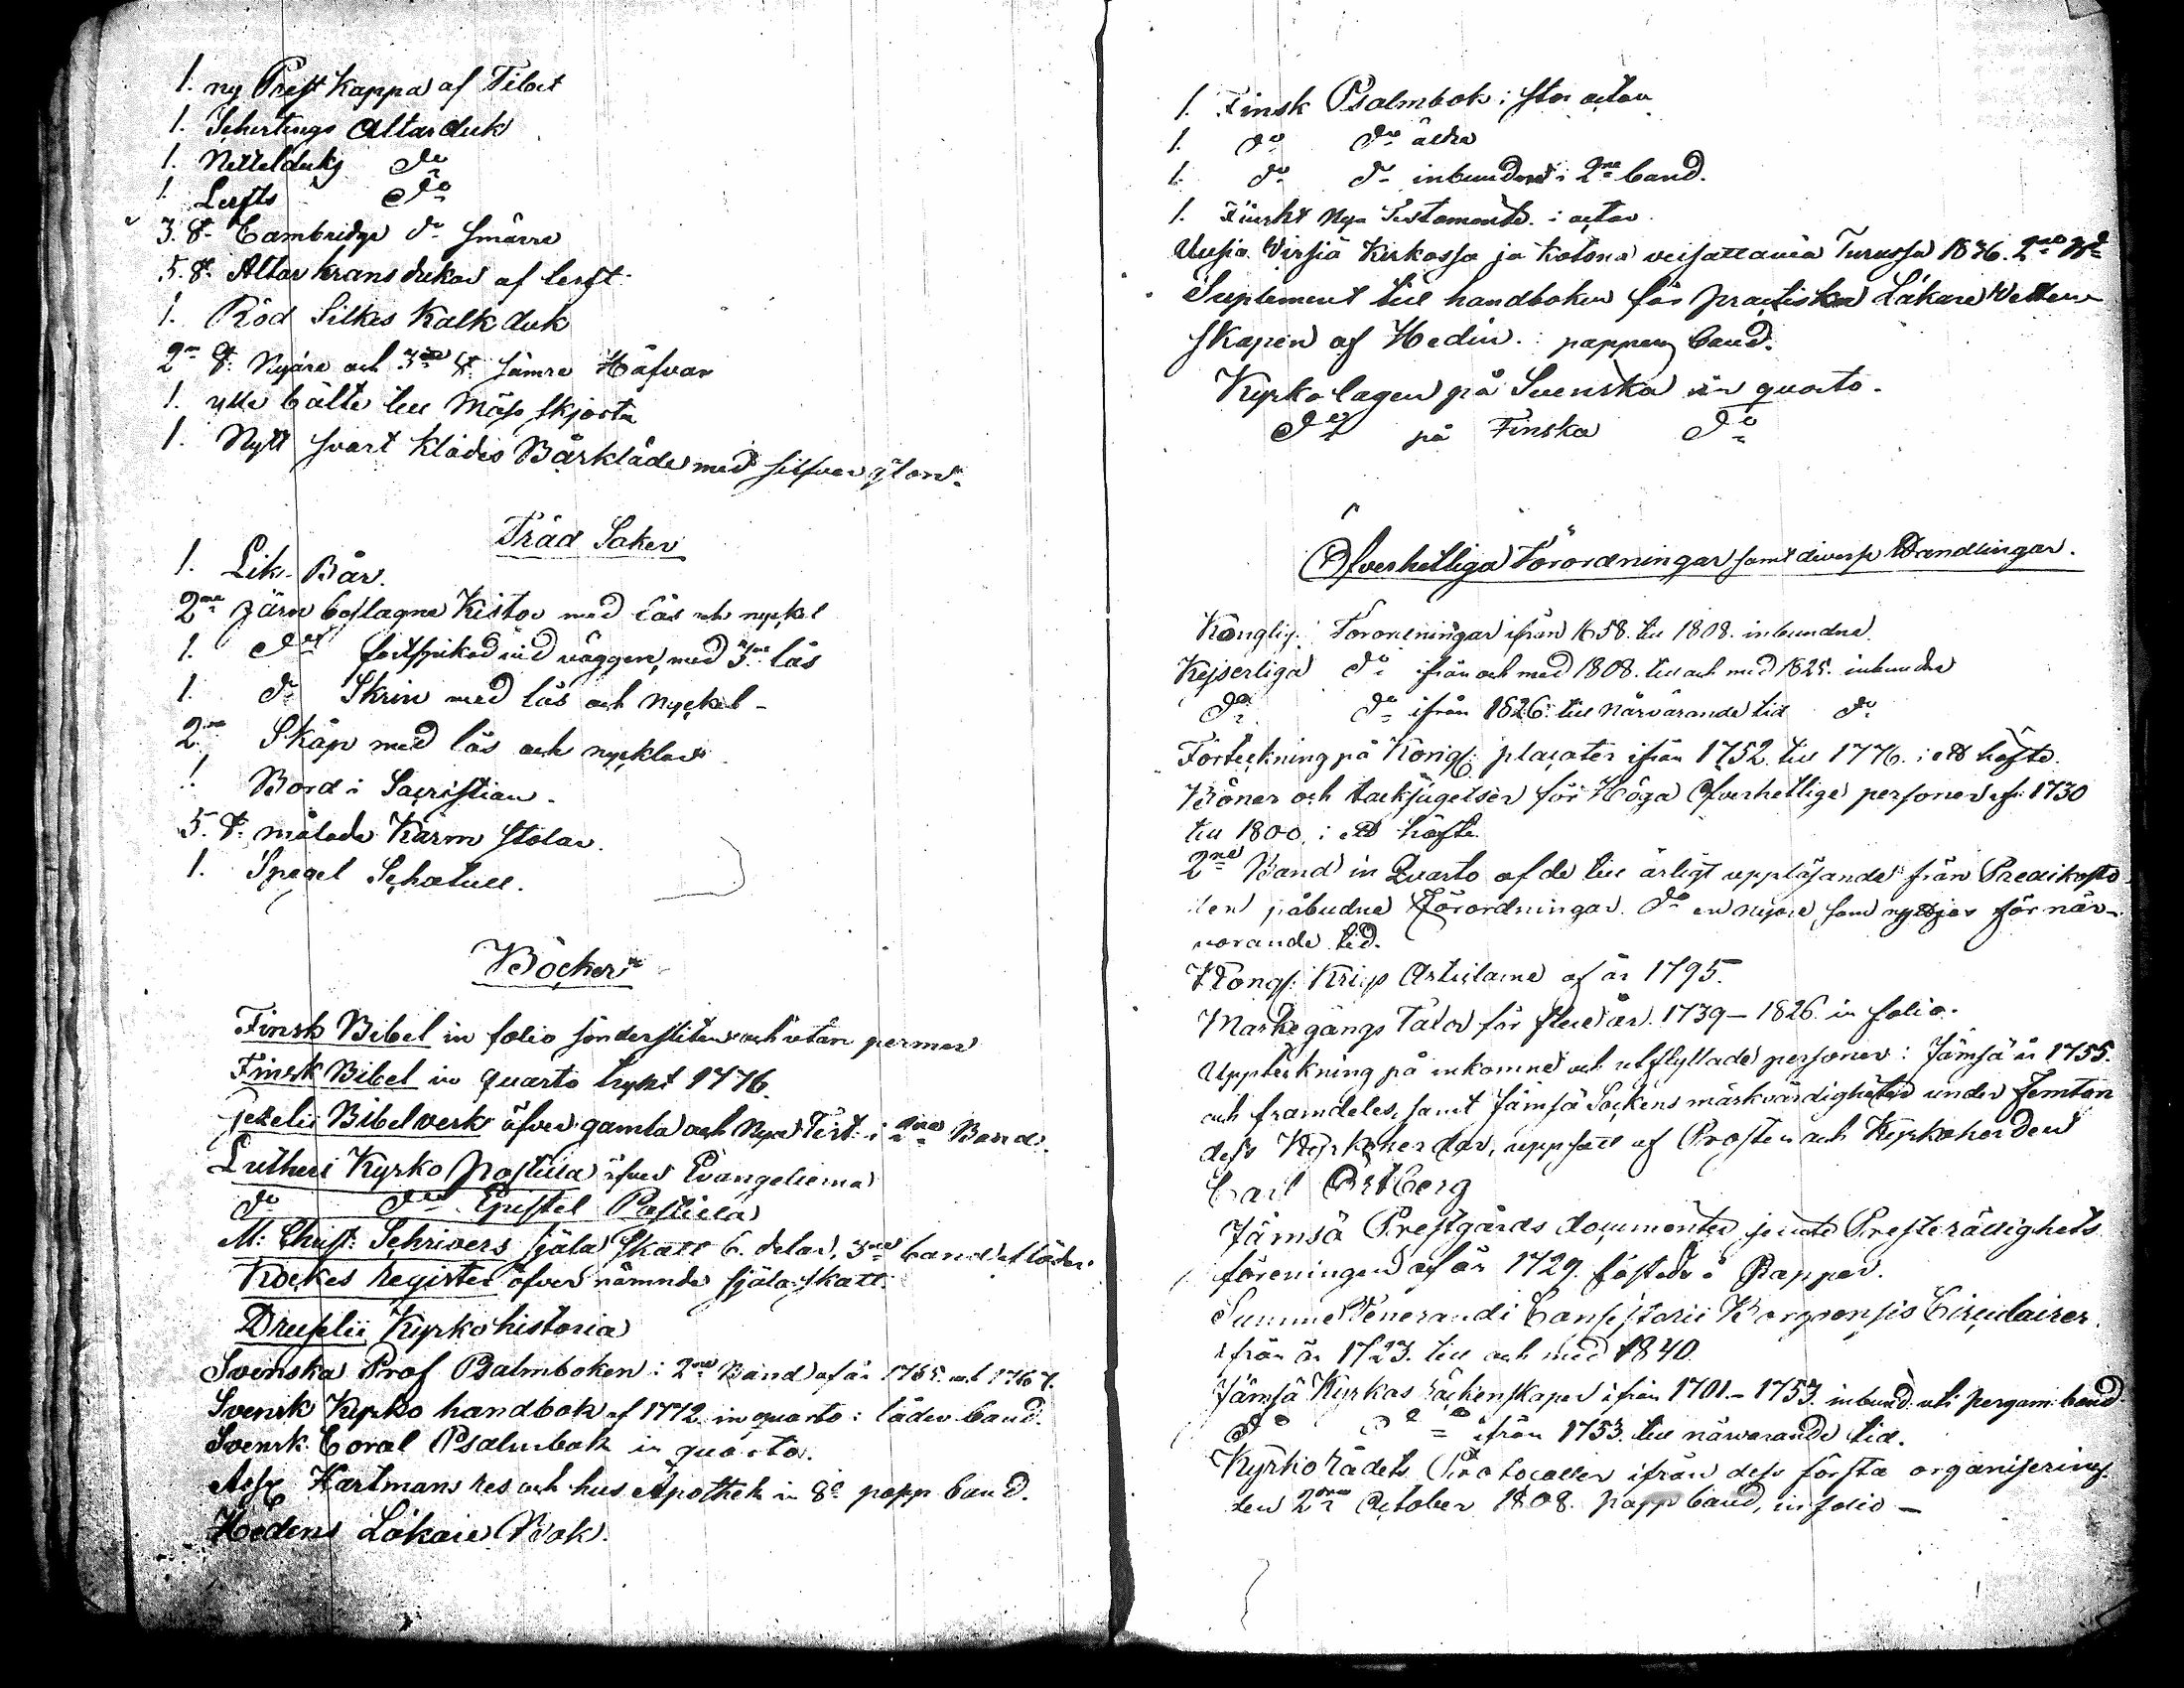 1. ny Prest Kappa af Tibet
1. Schertings Altarduk
1. Nettelduks do
1. Lerfts do
3. st. Cambridge do smärre
5. st. Altar krans dukar af lerft
1. Röd Silkes Kalk duk
2ne st. Nyare och 3ne st. sämre Håfvar
1. ylle bälte till Mäss skjorta
1. Nytt svart Klädes Bårkläde med silfver
Träd Saker
1. Lik-Bår.
2ne Järn beslagne Kistor med lås och nyckel
1. do fastspikad vid väggen, med 3ne lås
1. do Skrin med lås och Nyckel -
2ne Skåp med lås och nycklar
1. Bord i Sacristian.
5. st. målade Karm stolar.
1. Spegel Schatull.
Böcker
Finsk Bibel in folio sönderfliten och utan permar
Finsk Bibel in quarto tryckt 1776.
Gezelii Bibelverk öfver gamla och Nya Test: i 2ne Band.
Lutheri Kyrko Postilla öfver Evangelierna
do do Epistel Postilla
M: Christ: Schrivers Själa Skatt 6. delar, 3ne band af läder.
Kockes Register öfver nämnde själaskatt.
Druselii Kyrkohistoria
Svenska Prof Psalmboken i 2ne Band af år 1765. och 1767.
Svensk Kyrko handbok af 1772 in quarto i läder band.
Svensk Coral Psalmbok in quarto.
Hartmans res och hus Apothek in 8o papp band.
Hedens Läkare Bok.
1. Finsk Psalmbok i stor octav
1. do do äldre
1. do do inbunden i 2ne band.
1. Finskt Nya Testamente i octav.
Uusia Virsiä Kirkossa ja kotona veisattavia Turussa 1836. 2ne
Suplement till handboken för practiska Läkare Vetten-
skapen af Hedin i papperz band.
Kyrko lagen på Svenska in quarto.
do på Finska do
Öfverhetliga Förordningar samt diverse Handlingar.
Konglig: Förordningar ifrån 1658. till 1808. inbundne
Kejserliga do ifrån och med 1808. till och med 1825. inbundne
do do ifrån 1826. till närvarande tid do
Förteckning på Kongl: placater ifrån 1752. till 1776. i ett häfte.
Böner och tacksägelser för Höga Öfverhetlige personer ifr. 1730
till 1800. i ett häfte.
2ne Band in Quarto af de till årligt uppläsande från Prediksto-
len påbudne Förordningar. do en nyare, som nyttjas för när-
varande tid.
Kongl: Krigs Articlarne af år 1795.
Markegångs Taxor för flere år. 1739 - 1826. in folio.
Uppteckning på inkomne och utflyttade personer i Jämsä år 1755.
och framdeles, samt Jämsä Sockens märkvärdigheter under femton
dess Kyrkoherdar, uppsatt af Prosten och Kyrkoherden
Carl Östberg
Jämsä Prestgårds documenter jemte Presterättighets
föreningen af år 1729. fästade i Papper.
Summe Venerandi Consistorii Borgoensis Circulairer
ifrån år 1723. till och med 1840.
Jämsä Kyrkas Räkenskaper ifrån 1701. - 1753. inbund. uti pergam: band
do do ifrån 1753. till närvarande tid.
Kyrko Rådets Protocoller ifrån dess första organisering
den 2dra October 1808. papp band, in folio -